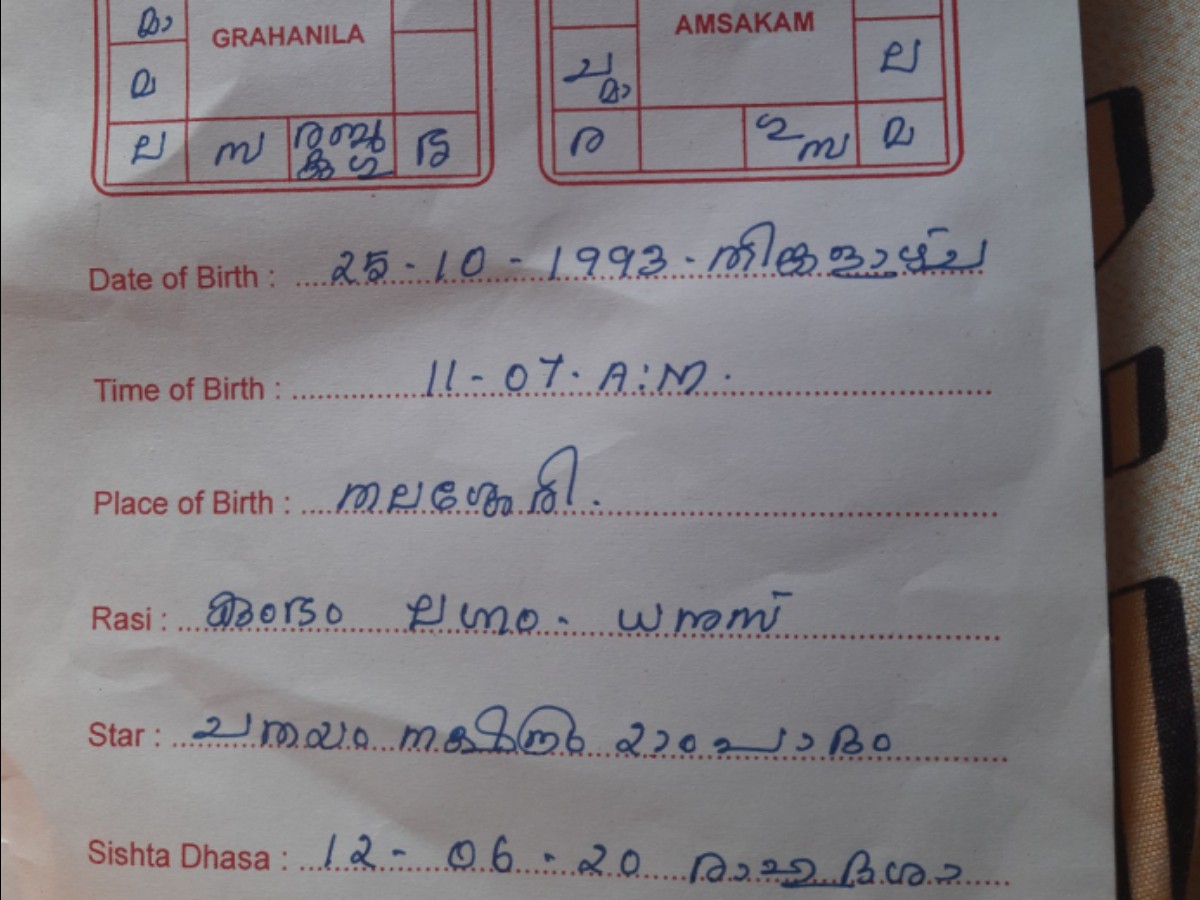 മാ GRAHANILA
മ
ല സ രബു കുഗു ശു
AMSAKAM
ച മാ ല
ര ഗു സ മ
Date of Birth : 25-10-1993 - തിങ്കളാഴ്ച
Time of Birth : 11-07. A:M.
Place of Birth : തലശ്ശേരി.
Rasi : കുംഭം ലഗ്നം - ധനുസ്
Star : ചതയം നക്ഷത്രം 2ാം പാദം
Sishta Dhasa : 12 - 06 - 20 രാഹുദശാ